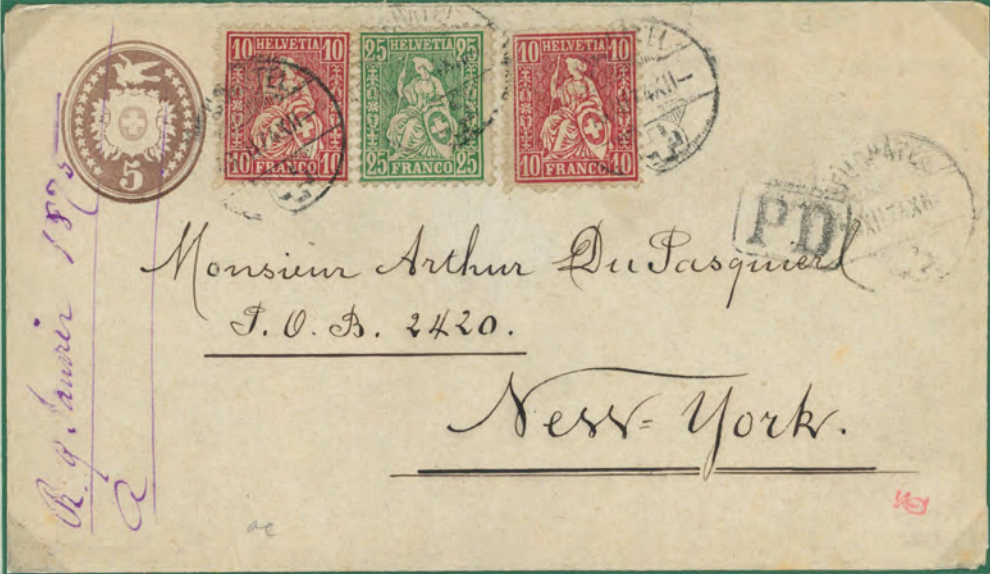 10 HELVETIA 10
10 FRANCO 10
25 HELVETIA 25
25 FRANCO 25
10 HELVETIA 10
10 FRANCO 10
5
PD
Monsieur Arthur DuPasquier
P. O. B. 2420.
New-York.
R. 9 Janvier 1875